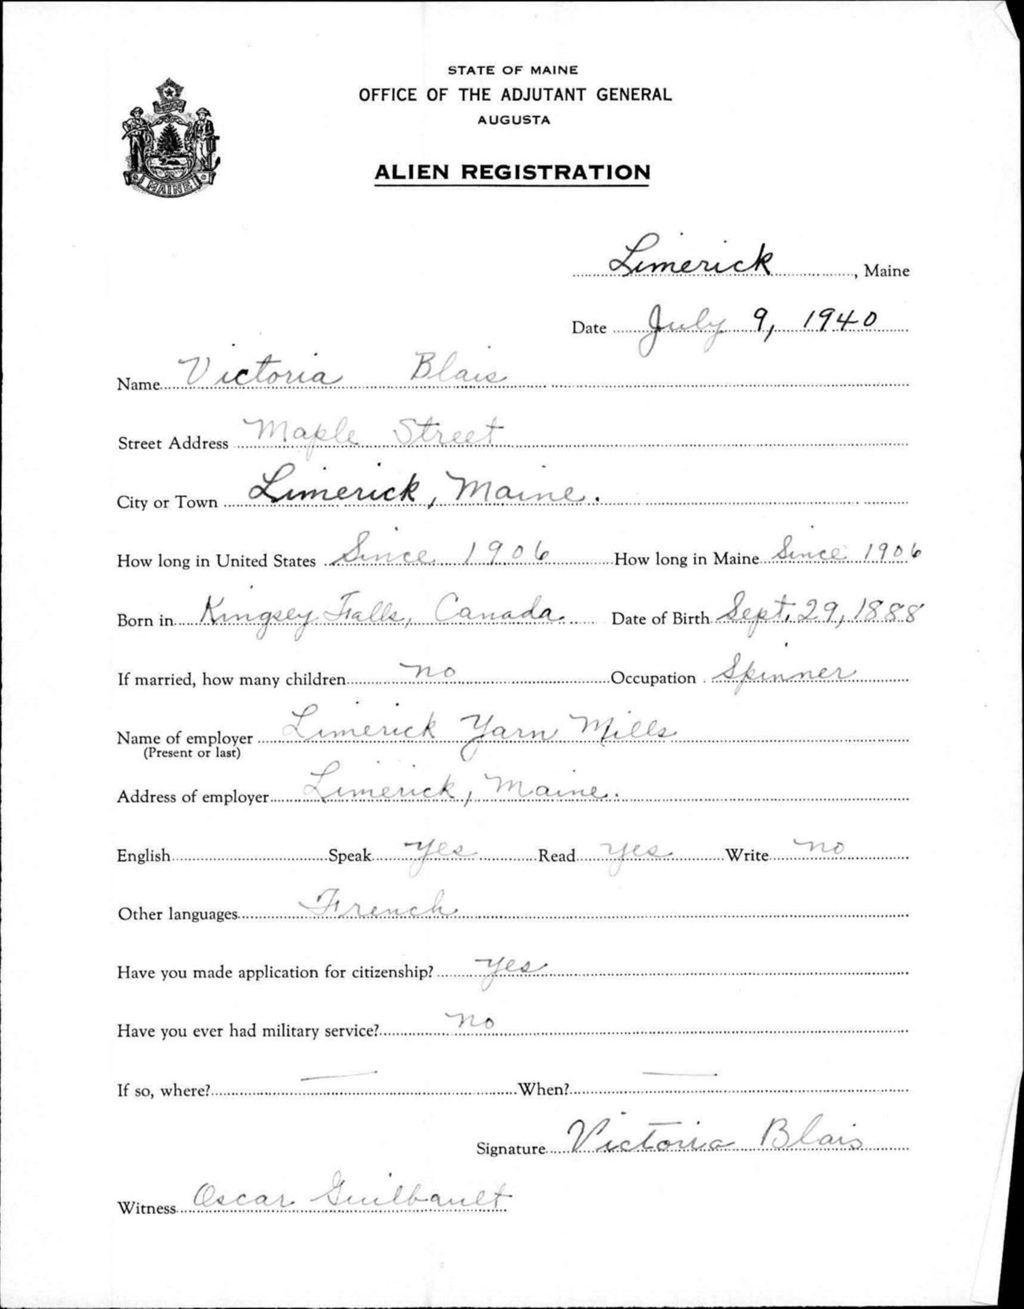 STATE OF MAINE
OFFICE OF THE ADJUTANT GENERAL
AUGUSTA
ALIEN REGISTRATION
MAINE
Limerick, Maine
Date July 9, 1940
Name Victoria Blais
Street Address Maple Street
City or Town Limerick, Maine.
How long in United States Since 1906 How long in Maine Since 1906
Born in Kingsey Falls, Canada. Date of Birth Sept. 29, 1888
If married, how many children no Occupation Spinner
Name of employer Limerick Yarn Mills
(Present or last)
Address of employer Limerick, Maine.
English Speak yes Read yes Write no
Other languages French
Have you made application for citizenship? yes
Have you ever had military service? no
If so, where? — When? —
Signature Victoria Blais
Witness Oscar Guilbault